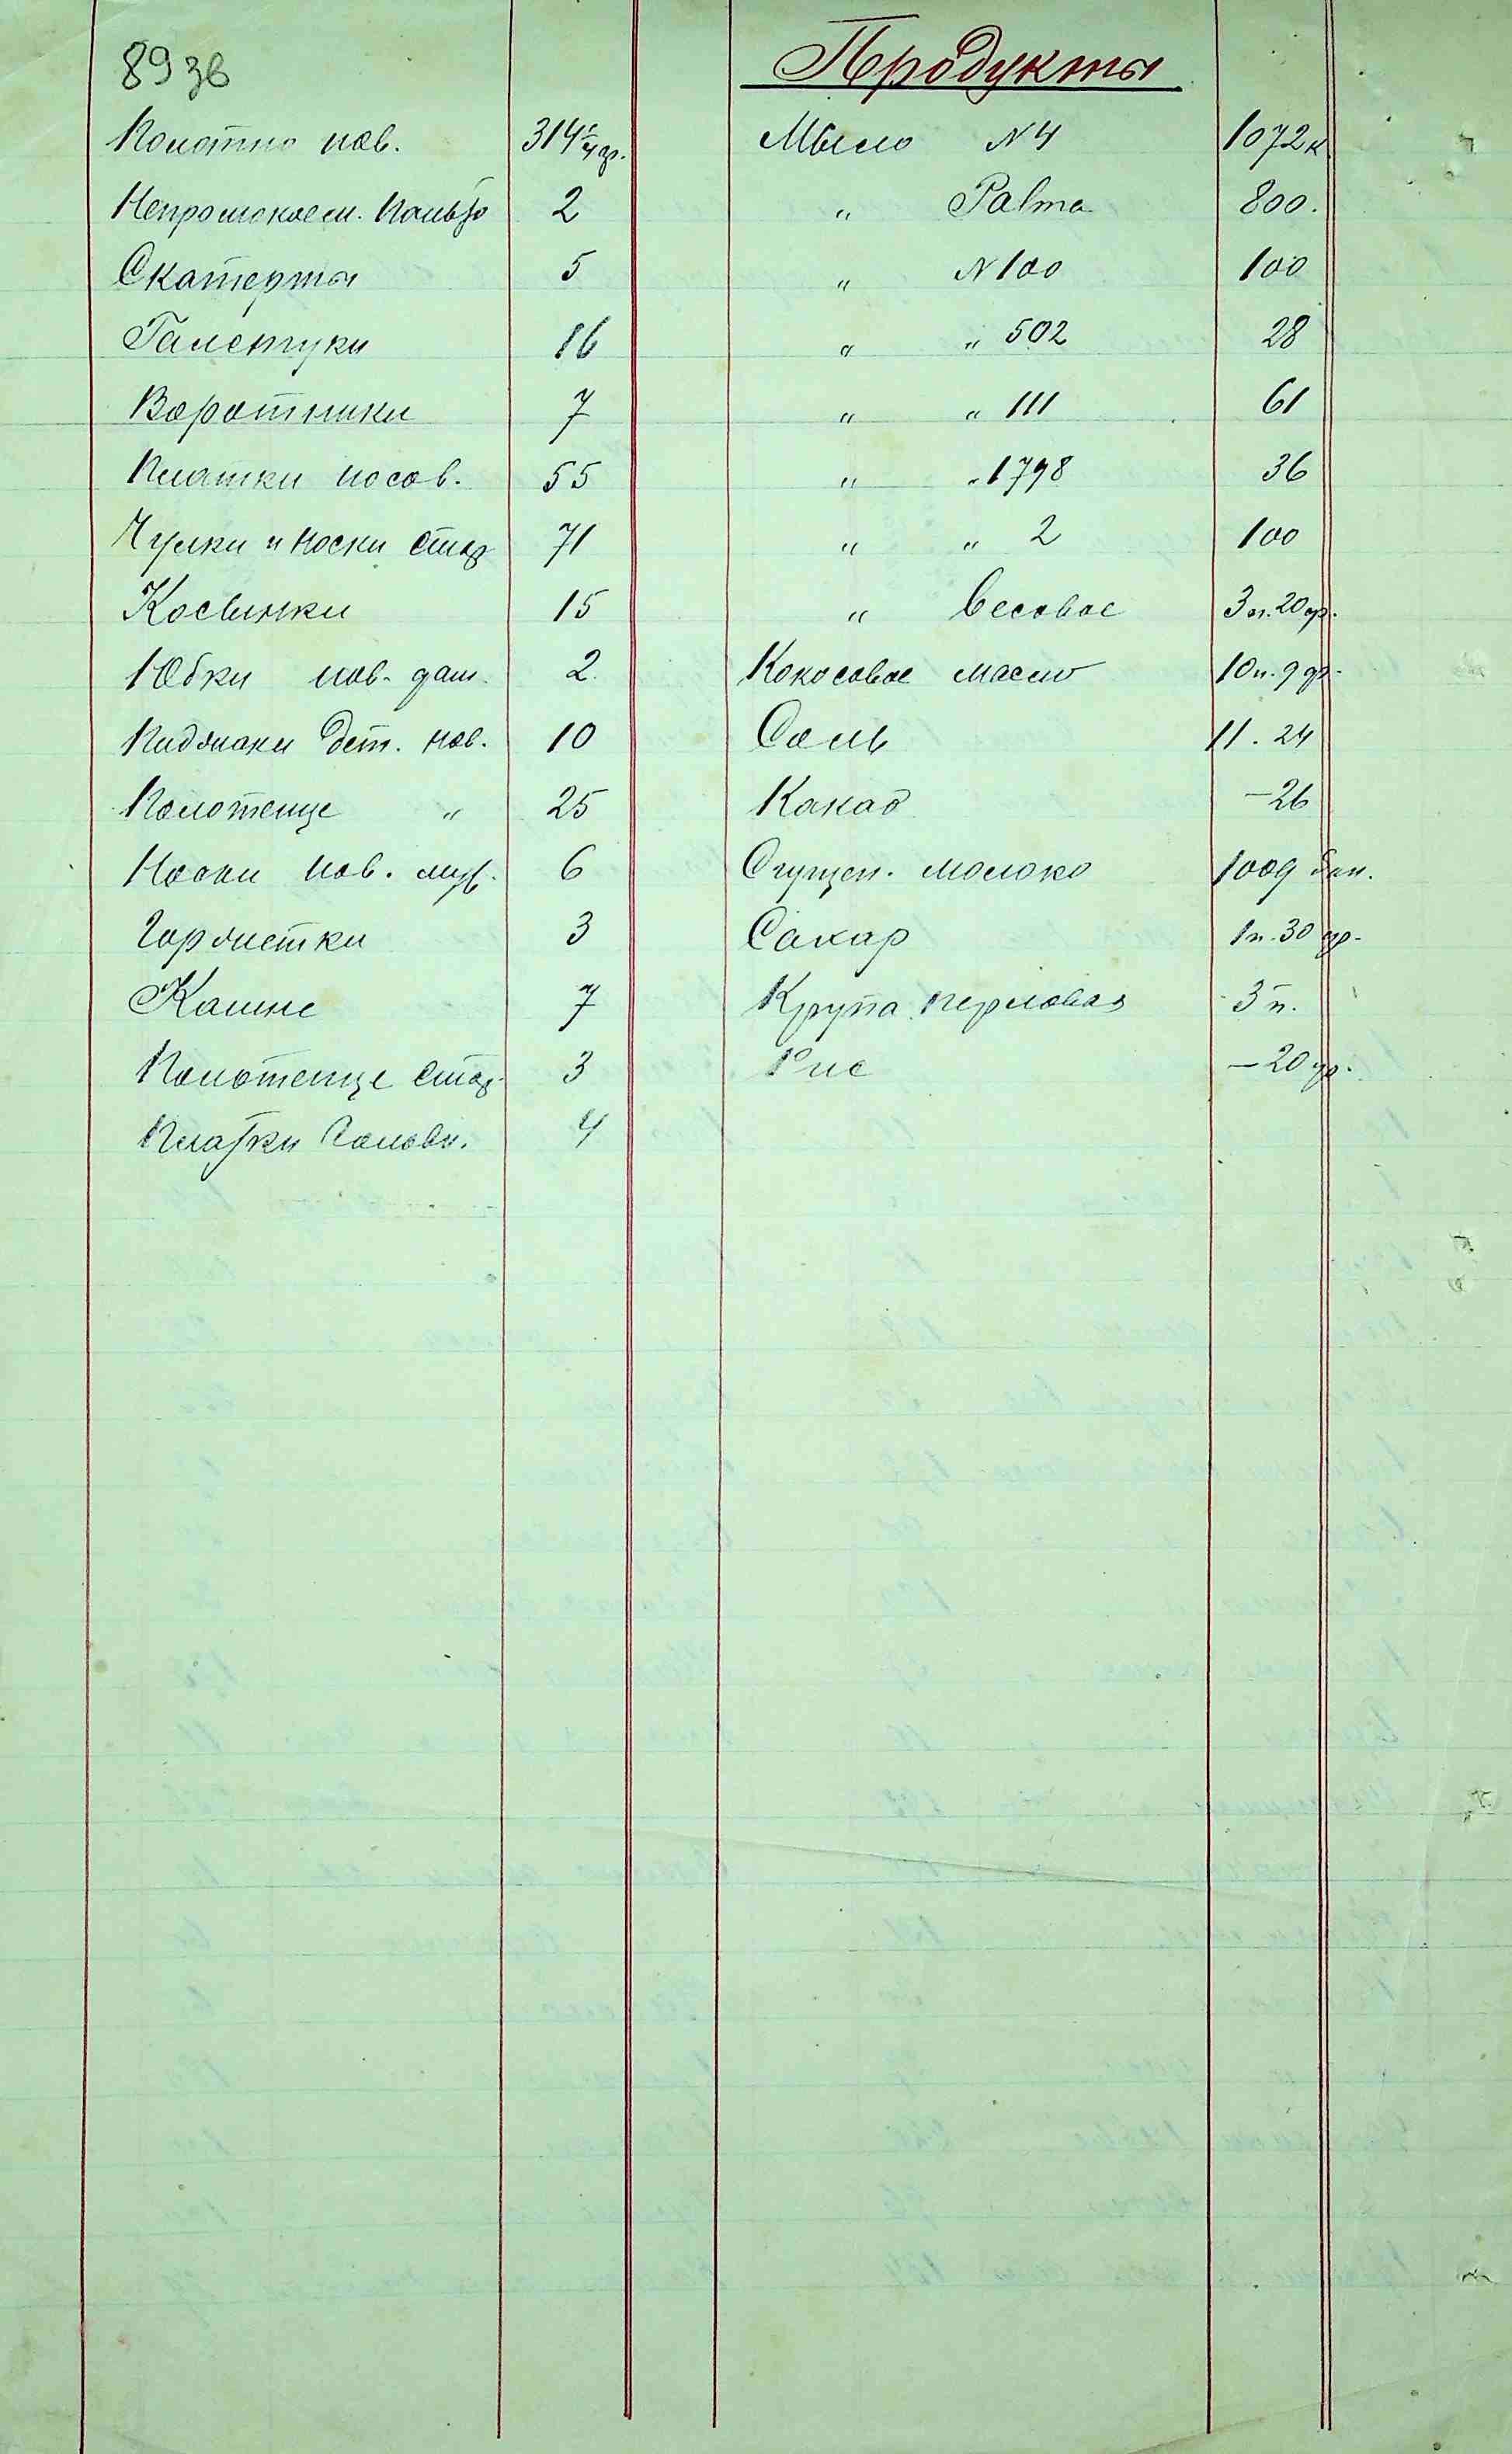 89 зв
Полотно нов. 314 1/4 ар.
Непромокаем. Пальто 2
Скатерты 5
Галстуки 16
Воротники 7
Платки носов. 55
Чулки и носки стар 71
Косынки 15
Юбки нов. дам. 2.
Пиджаки дет. нов. 10
Полотенце " 25
Носки нов. муж. 6
Горжетки 3
Кашне 7
Полотенце стар. 3
Платки головн. 4
Продукты
Мыло N 4 1072 к
" Palma 800.
" N 100 100
" " 502 28
" " 111 61
" " 1798 36
" " 2 100
" Весовое 3 п. 20 ф.
Кокосовое масло 10 п. 9 ф.
Соль 11. 24
Какао – 26
Сгущен. молоко 1009 бан.
Сахар 1 п. 30 ф.
Крупа перловая 3 п.
Рис – 20 ф.